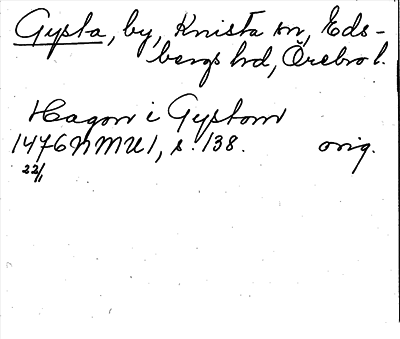 Gysta, by, Knista sn, Eds-
bergs hd, Örebro l.
Hagon i Gystom
1476 NMU 1, s. 138. orig.
22/1